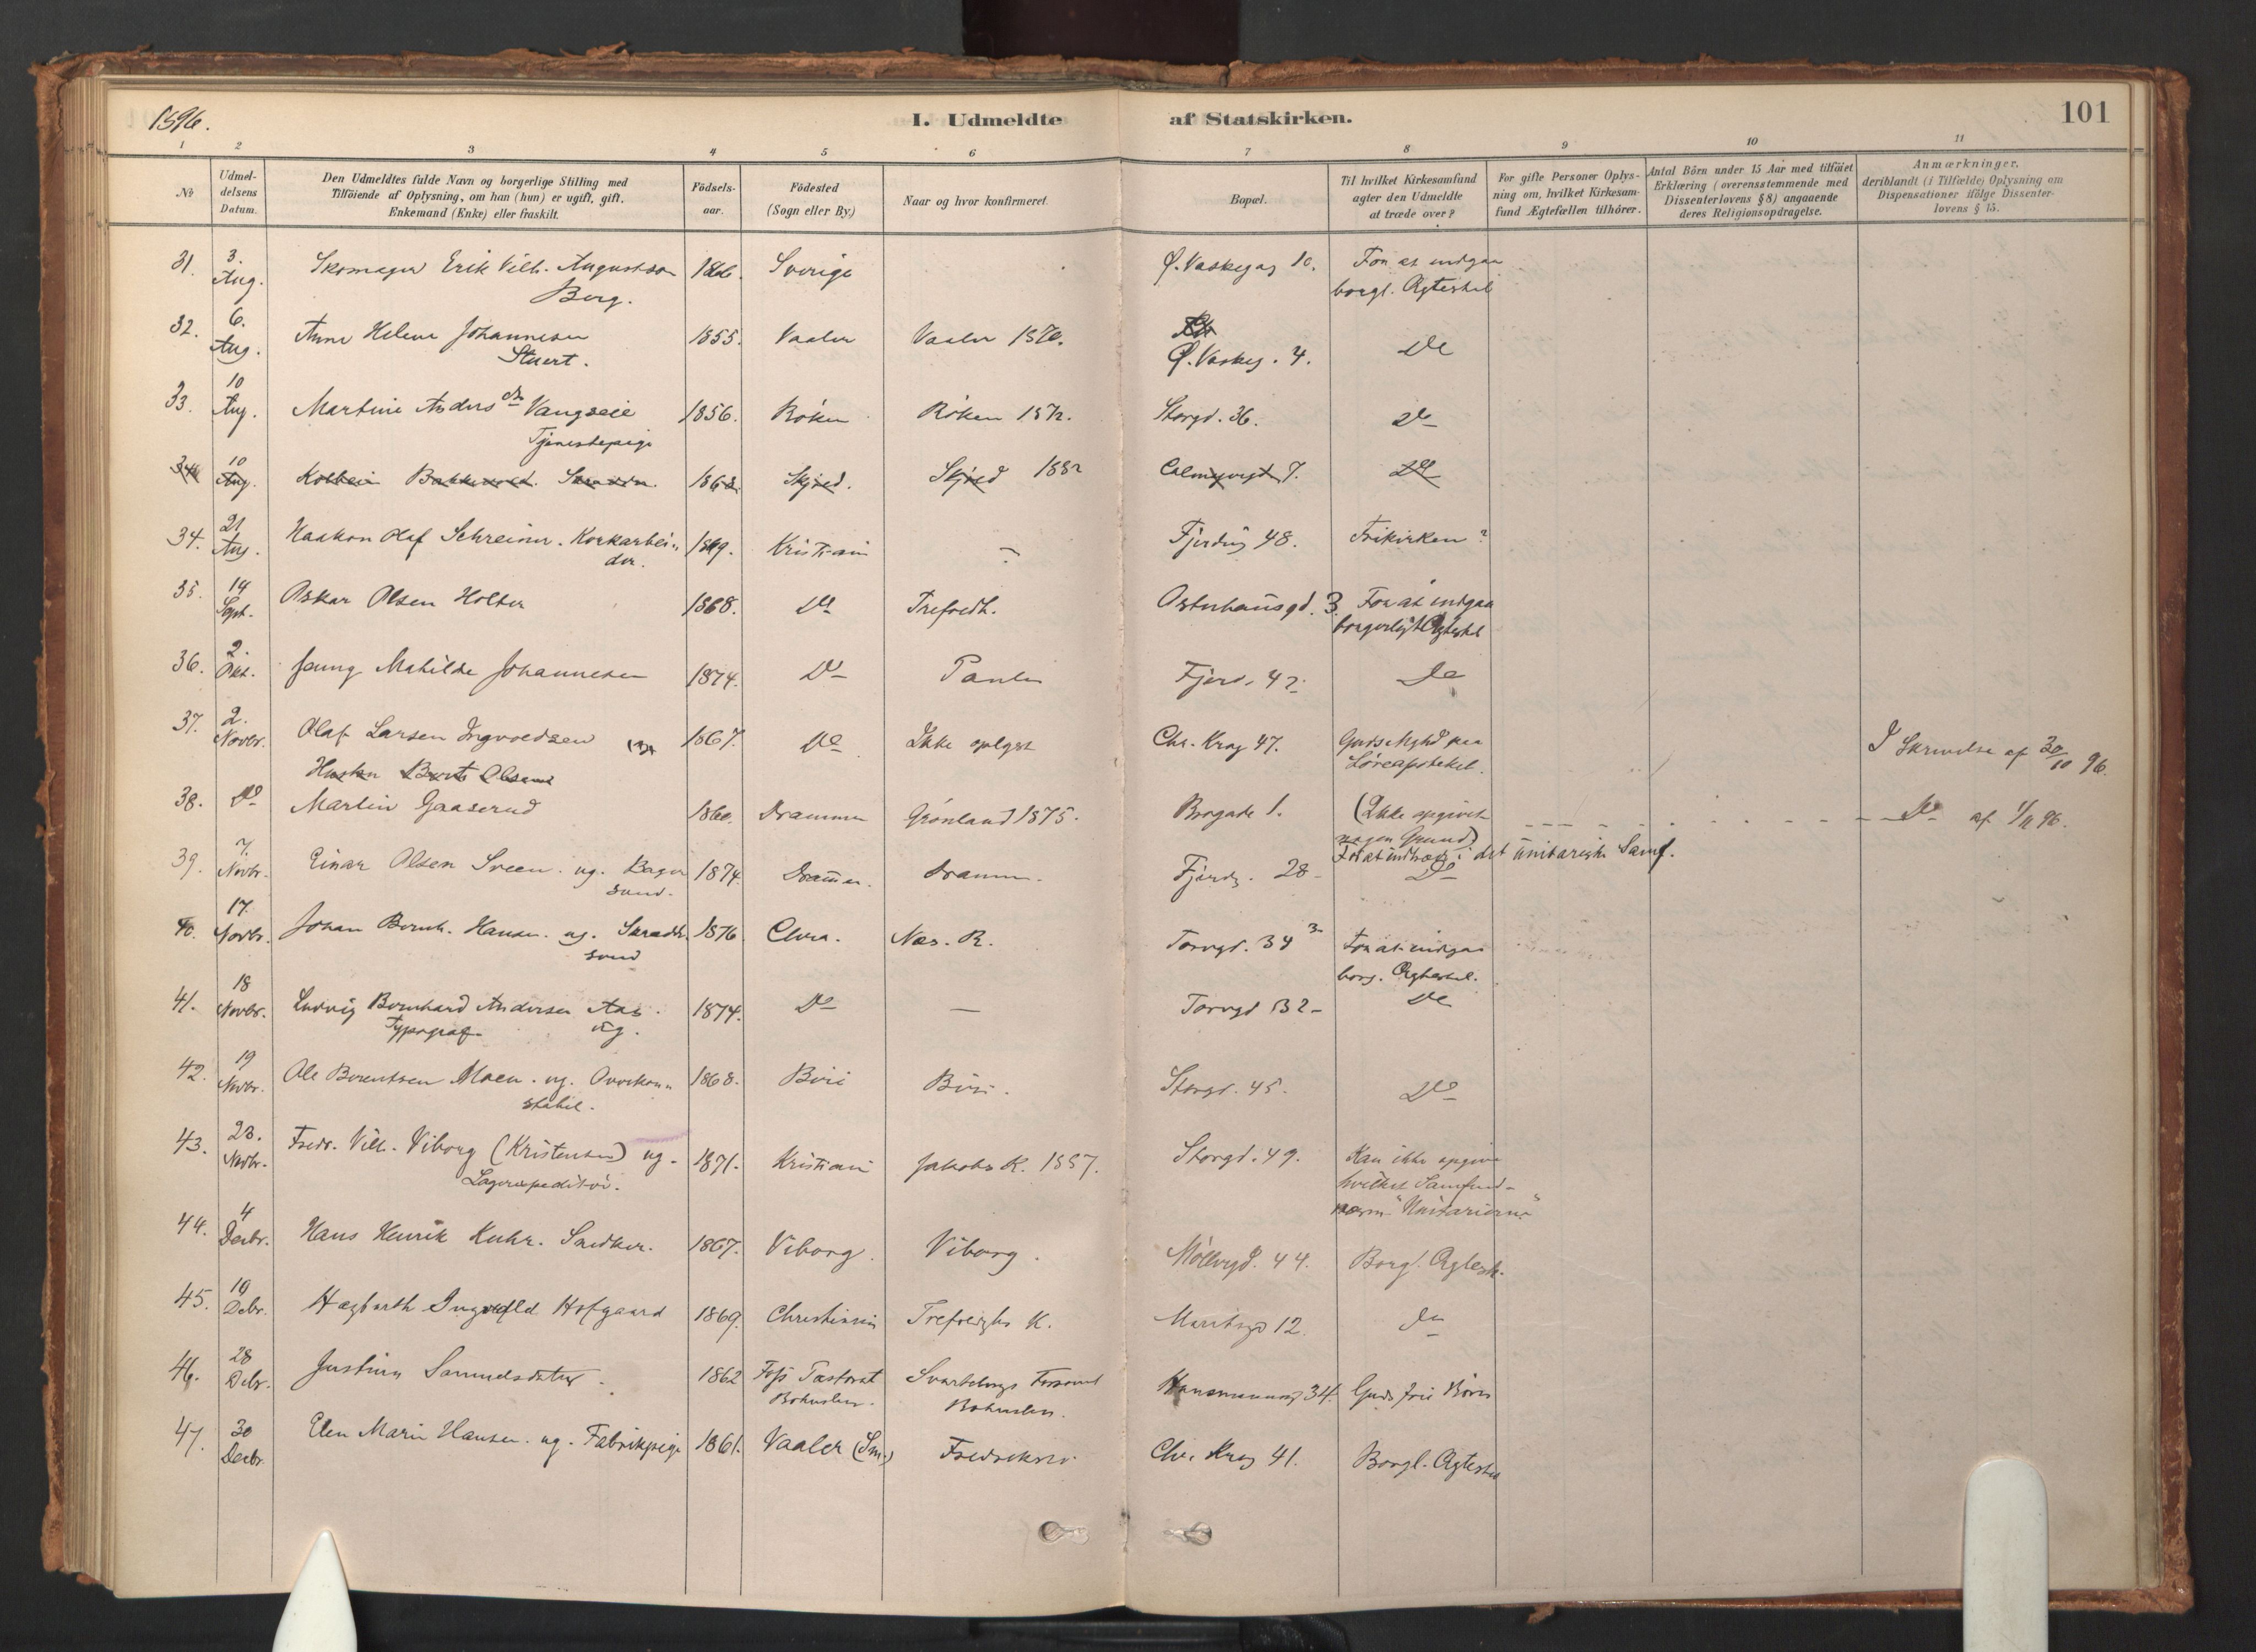 1896.
I. Udmeldte af Statskirken.
101
1 2 3 4 5 6 7 8 9 10 11
No
Udmeldelsens Datum.
Den Udmeldtes fulde Navn og borgerlige Stilling med
Tilføiende af Oplysning, om han (hun) er ugift, gift,
Enkemand (Enke) eller fraskilt.
Födsels-
aar.
Födested
(Sogn eller By.)
Naar og hvor konfirmeret.
Bopæl.
Til hvilket Kirkesamfund
agter den Udmeldte
at træde over?
For gifte Personer Oplys-
ning om, hvilket Kirkesam-
fund Ægtefællen tilhörer.
Antal Börn under 15 Aar med tilföiet
Erklæring (overensstemmende med
Dissenterlovens § 8) angaaende
deres Religionsopdragelse.
Anmærkninger,
deriblandt (i Tilfælde) Oplysning om
Dispensationer ifölge Dissenter-
lovens § 15.
31. 3. Aug. Skomager Erik Vilh. Augustson Sverige Ø. Vaskegag 10. For at indgaa
Berg. borgl. Ægteskab
32. 6. Aug. Anne Helene Johannesen 1855. Vaaler Vaaler 1870.
Stuert. Ø. Vaskeg. 4. Do
33. 10 Aug. Martine Andersdr Vangseie 1856. Röken Röken 1872. Storgd. 36. Do
Tjenestepige
34 10 Aug. 1863 Skjred. Skjred 1882 7. Do
34. 21 Aug. Haakon Olaf Schreiner. Korkarbei- 1869. Kristiani – Fjerding 48. Frikirken?
der.
35. 14 Sept. Oskar Olsen Holter 1868. Do Trefoldh. Osterhausgd. 3. For at indgaa
borgerligt Ægteskab
36. 2. Okt. Jenny Mathilde Johannesen 1874. Do Pauli Fjerd. 42. Do
37. 2. Novbr. Olaf Larsen Ingvoldsen 1867. Do Ikke oplyst Chr. Krag 47. Guds Mghd paa I Skrivelse af 30/10 96.
Løveapotheket.
Hustru Berte Olsen
38. Do Martin Gaaserud 1860. Drammen Grönland 1875. Brogade 1. (Ikke opgivet Do af 1/11 96.
nogen Grund)
For at indtræde i det unitariske Samf.
39. 7. Novbr. Einar Olsen Sveen. ug. Bager 1874. Drammen. Dramm. Fjerdg. 28 Do
svend.
40. 17. Novbr. Johan Bernh. Hansen. ug. Skrædder 1876. Elver. Næs. R. Torvgd. 34 For at indgaa
svend borg. Ægteskab.
41. 18 Novbr. Ludvig Bernhard Andersen Aas. 1874. Do — Torvgd 32 Do
Typograf ug.
42. 19 Novbr. Ole Berentsen Moen. ug. Overkon- 1868. Biri Biri. Storgd. 45. Do
stabel.
43. 23. Novbr. Fredr. Vilh. Viborg (Kristensen) ug. 1871. Kristiani Jakobs K. 1887. Storgd. 49. Kan ikke opgive
Lagerexpeditör. hvilket Samfund
"Unitarierne"
44. 4 Decbr. Hans Henrik Kuhr. Snedker. 1867. Viborg. Viborg. Möllergd. 44. Borgl. Ægtesk.
45. 19 Decbr. Hagbarth Ingvald Hofgaard 1869. Christiania Trefoldighs K. Maritsgd 12. Do
46. 28 Decbr. Justina Samuelsdatter 1862 Foss Pastorat Svarteborgs Forsaml Hausmannsg 34. Guds frie Börn
Bohuslen. Bohuslen.
47. 30 Decbr. Elen Marie Hansen. ug. Fabrikpige 1861. Vaaler (Sm.) Fredrikst. Chr. Krag 41. Borgl. Ægteskab